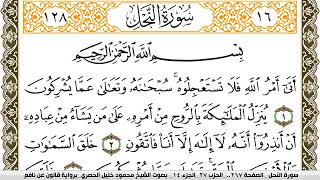 ١٦ سُورَةُ النَّحْلِ ١٢٨
بِسْمِ اللَّهِ الرَّحْمَٰنِ الرَّحِيمِ
أَتَىٰ أَمْرُ اللَّهِ فَلَا تَسْتَعْجِلُوهُ سُبْحَانَهُ وَتَعَالَىٰ عَمَّا يُشْرِكُونَ
١ يُنَزِّلُ الْمَلَائِكَةَ بِالرُّوحِ مِنْ أَمْرِهِ عَلَىٰ مَنْ يَشَاءُ مِنْ عِبَادِهِ
أَنْ أَنْذِرُوا أَنَّهُ لَا إِلَٰهَ إِلَّا أَنَا فَاتَّقُونِ ٢ خَلَقَ السَّمَاوَاتِ
سورة النحل الصفحة ٢٦٧ الحزب ٢٧ الجزء ١٤ بصوت الشيخ محمود خليل الحصري برواية قالون عن نافع